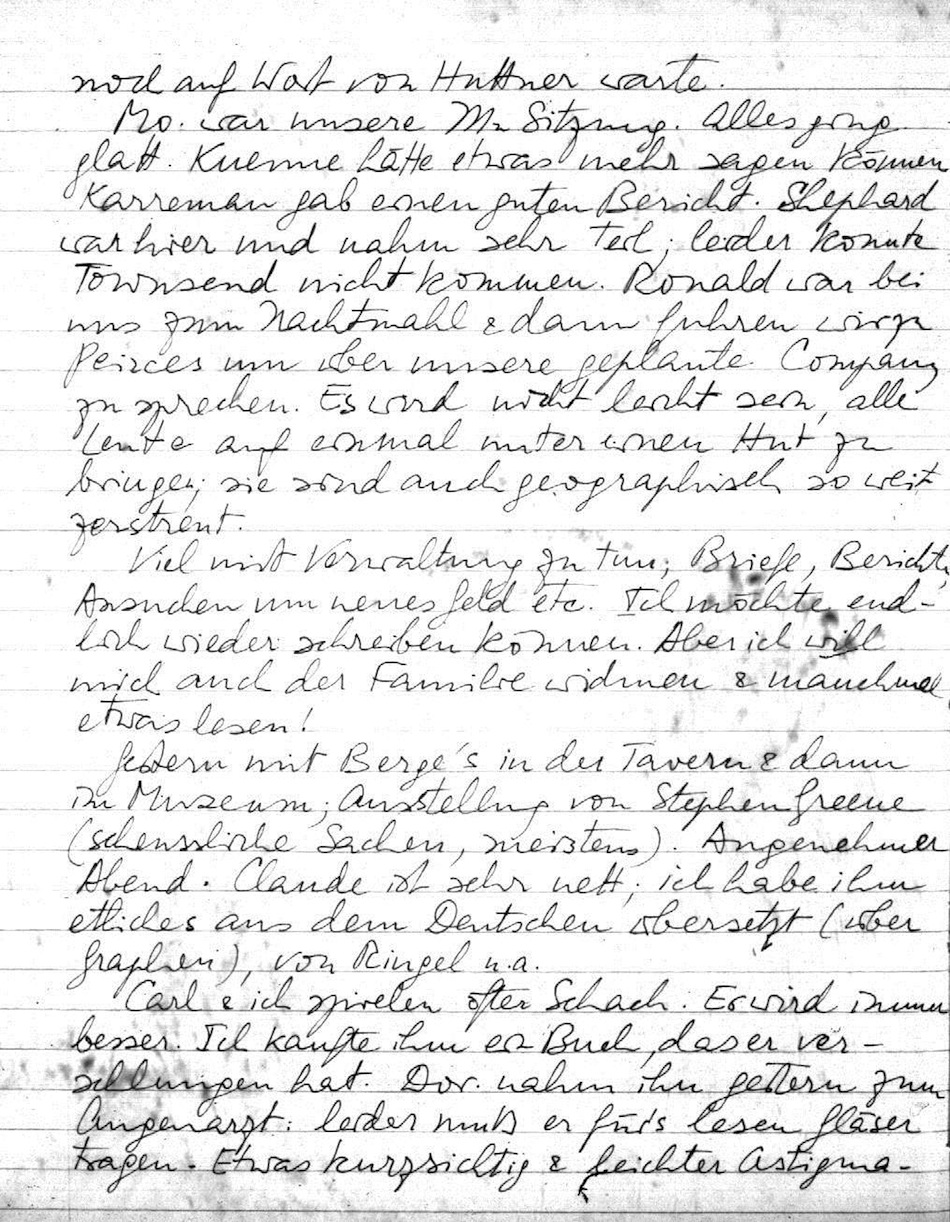 noch auf Wort von Huttner warte.
Mo. war unsere Sitzung. Alles ging
glatt. Kuenne hätte etwas mehr sagen können
Karreman gab einen guten Bericht. Shephard
war hier und nahm sehr Teil; leider konnte
Townsend nicht kommen. Ronald war bei
uns zum Nachtmahl & dann fuhren wir zu
Peirces um über unsere geplante Company
zu sprechen. Es wird nicht leicht sein, alle
Leute auf einmal unter einen Hut zu
bringen; sie sind auch geographisch so weit
zerstreut.
Viel mit Verwaltung zu tun; Briefe, Berichte,
Ansuchen um neues Geld etc. Ich möchte end-
lich wieder schreiben können. Aber ich will
mich auch der Familie widmen & manchmal
etwas lesen!
Gestern mit Berge's in der Tavern & dann
im Museum; Ausstellung von Stephen Greene
(scheussliche Sachen, meistens). Angenehmer
Abend. Claude ist sehr nett; ich habe ihm
etliches aus dem Deutschen übersetzt (über
Graphen), von Ringel u.a.
Carl & ich spielen öfter Schach. Er wird immer
besser. Ich kaufte ihm ein Buch, das er ver-
schlungen hat. Dor. nahm ihn gestern zum
Augenarzt: leider muß er für's lesen Gläser
tragen. Etwas kurzsichtig & leichter Astigma-